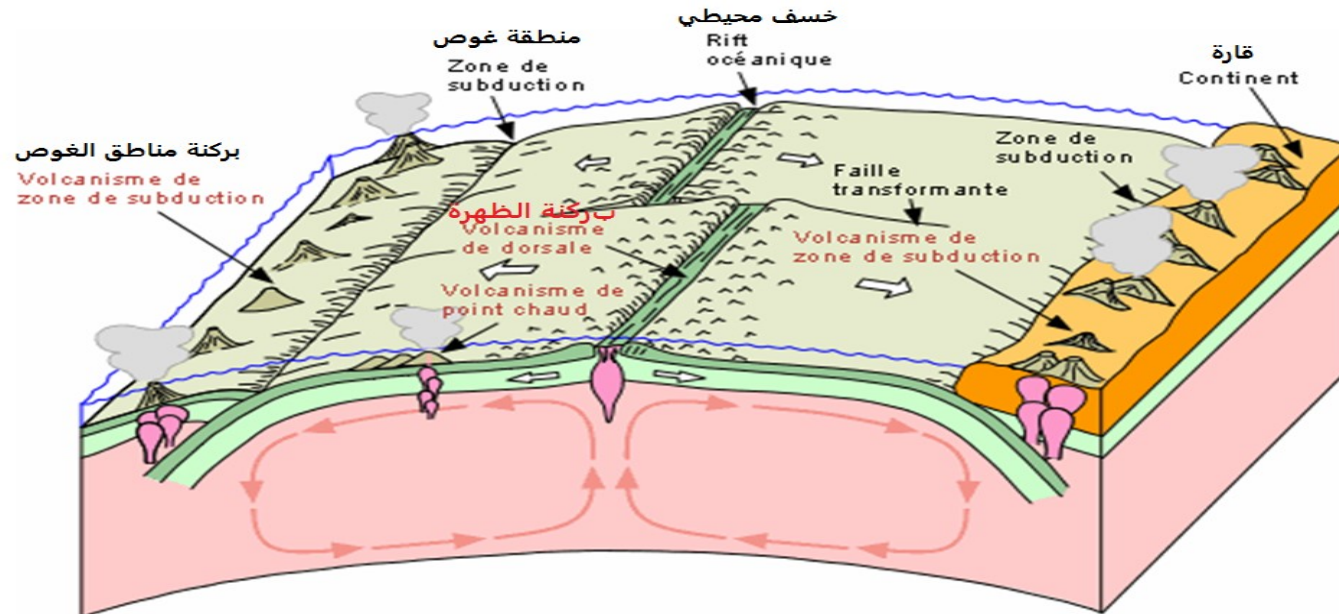 خسف محيطي
Rift
océanique
منطقة غوص
Zone de
subduction
قارة
Continent
بركنة مناطق الغوص
Volcanisme de
zone de subduction
Zone de
subduction
Faille
transformante
بركنة الظهرة
Volcanisme
de dorsale
Volcanisme de
zone de subduction
Volcanisme de
point chaud